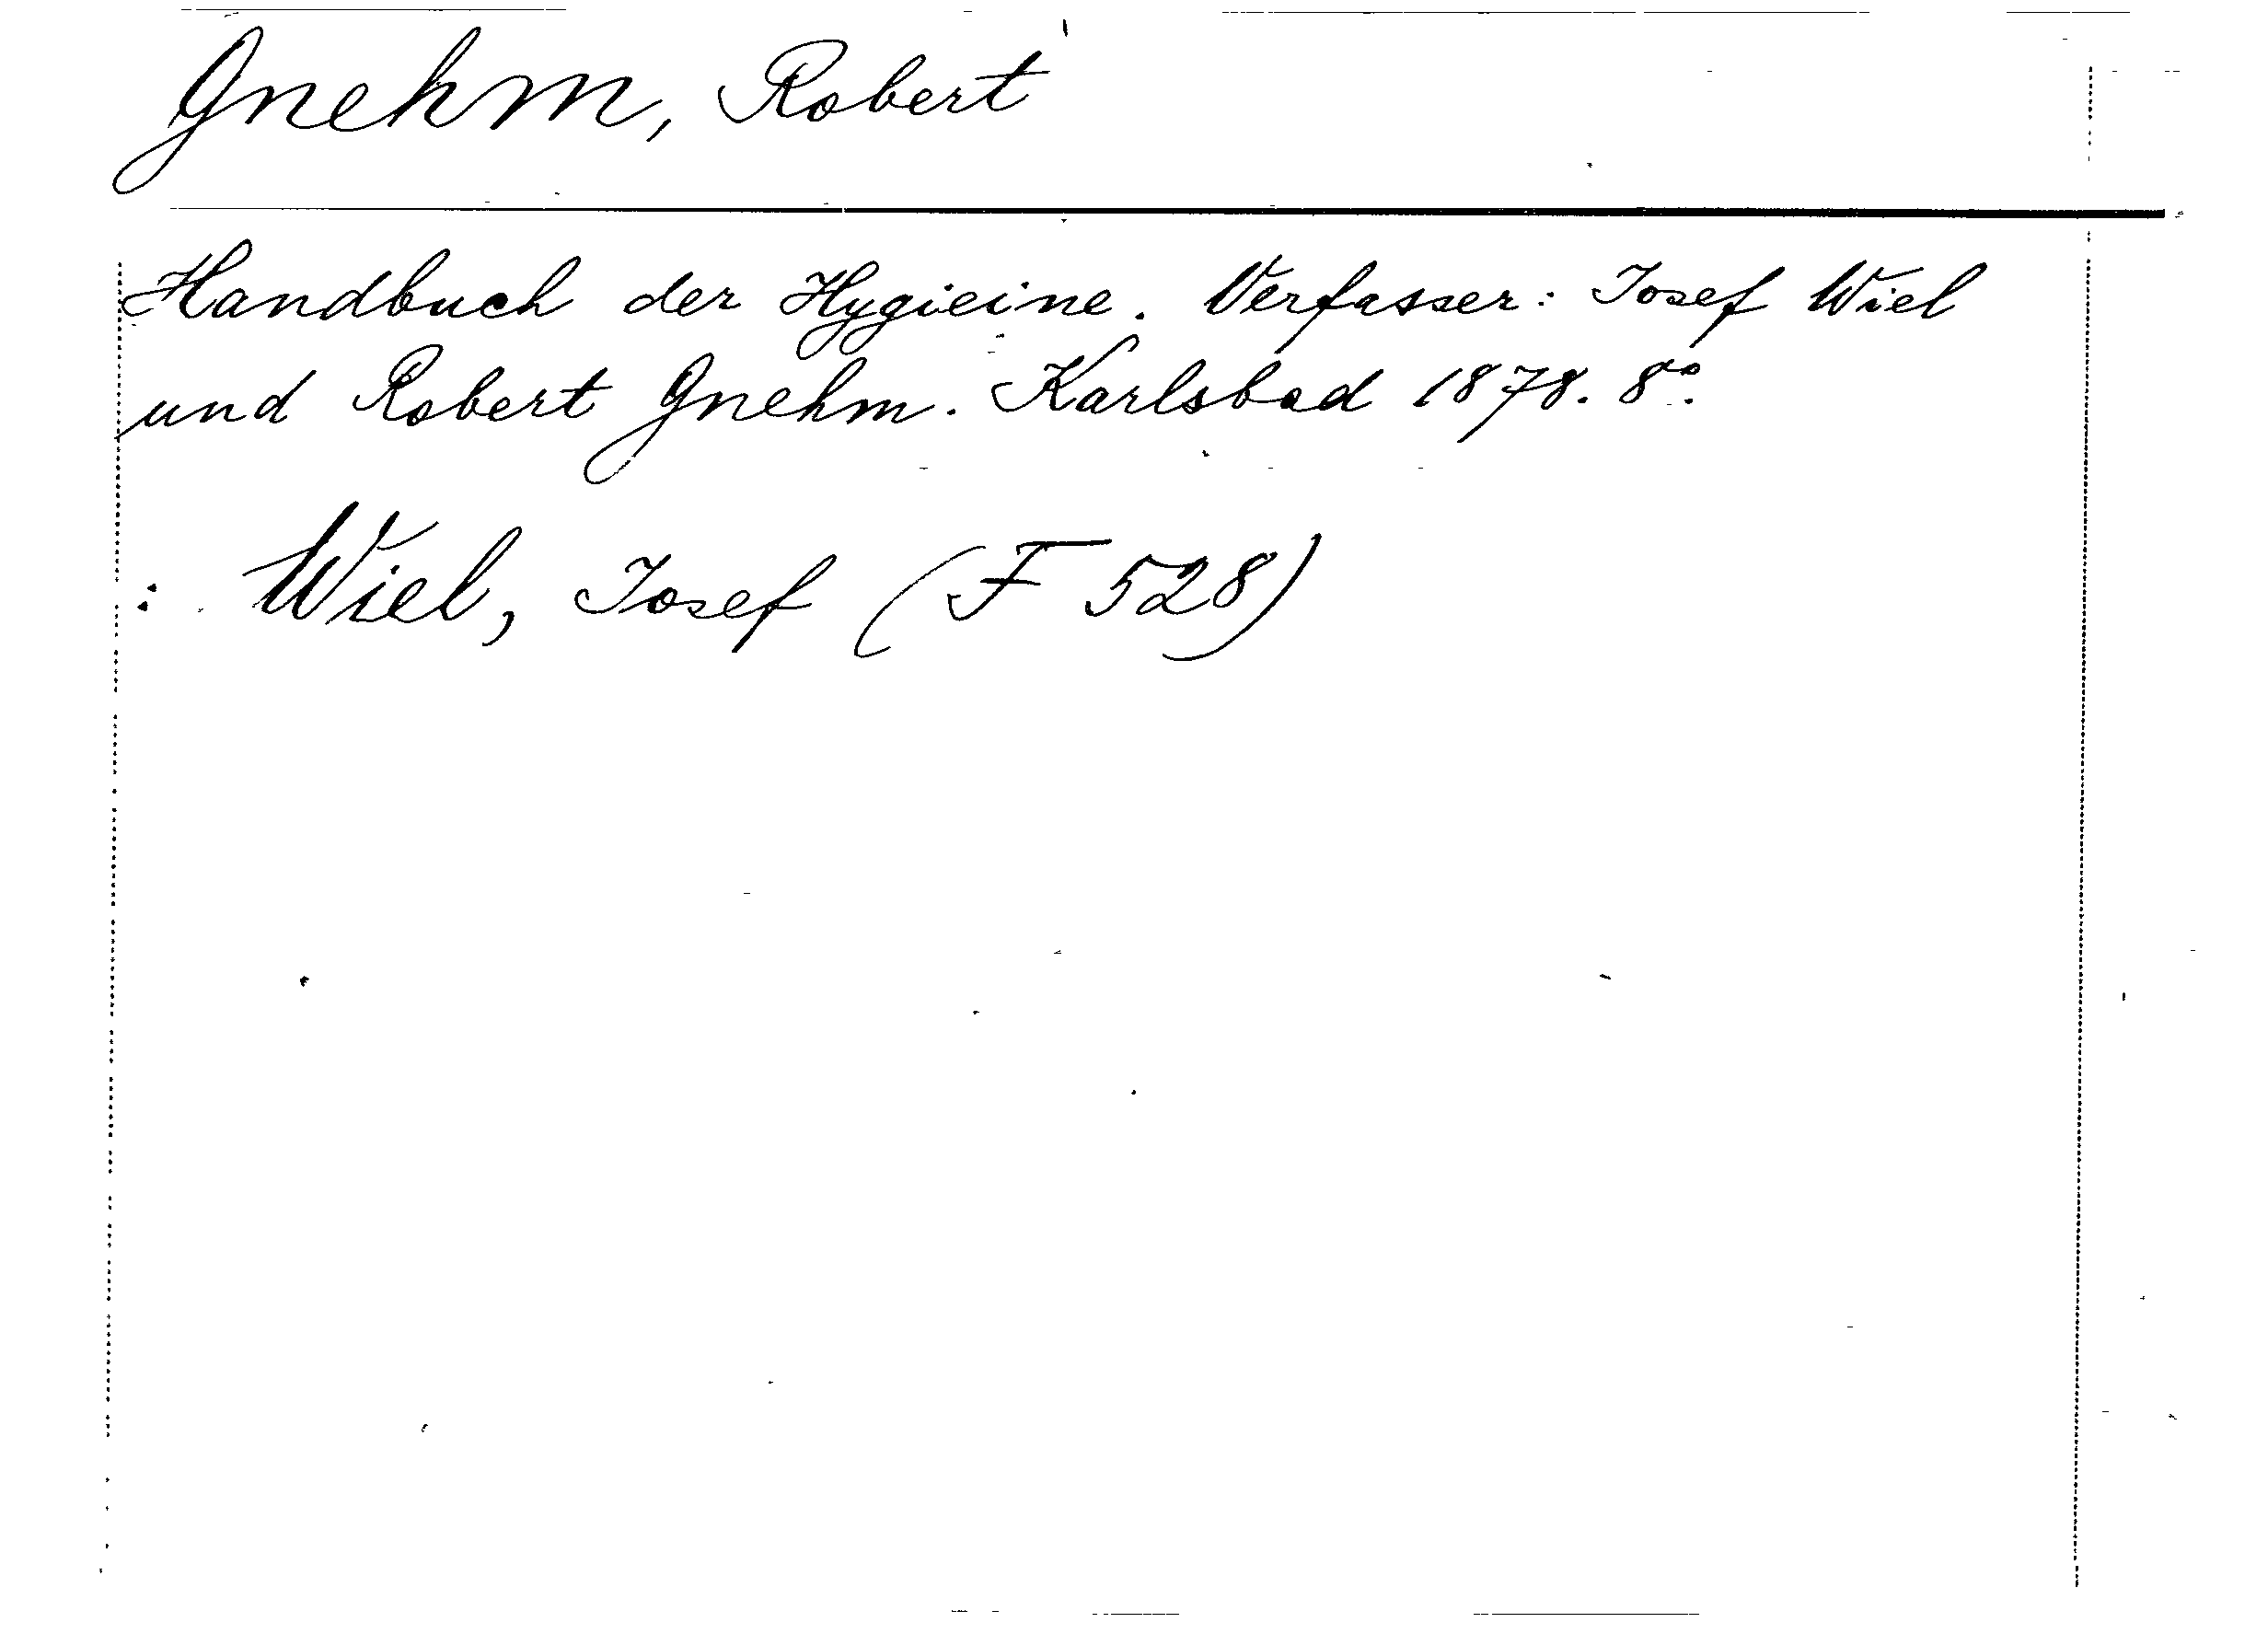 Gnehm, Robert
Handbuch der Hygieine. Verfasser: Josef Wiel
und Robert Gnehm. Karlsbad 1878. 8°.
: Wiel, Josef (F 528)